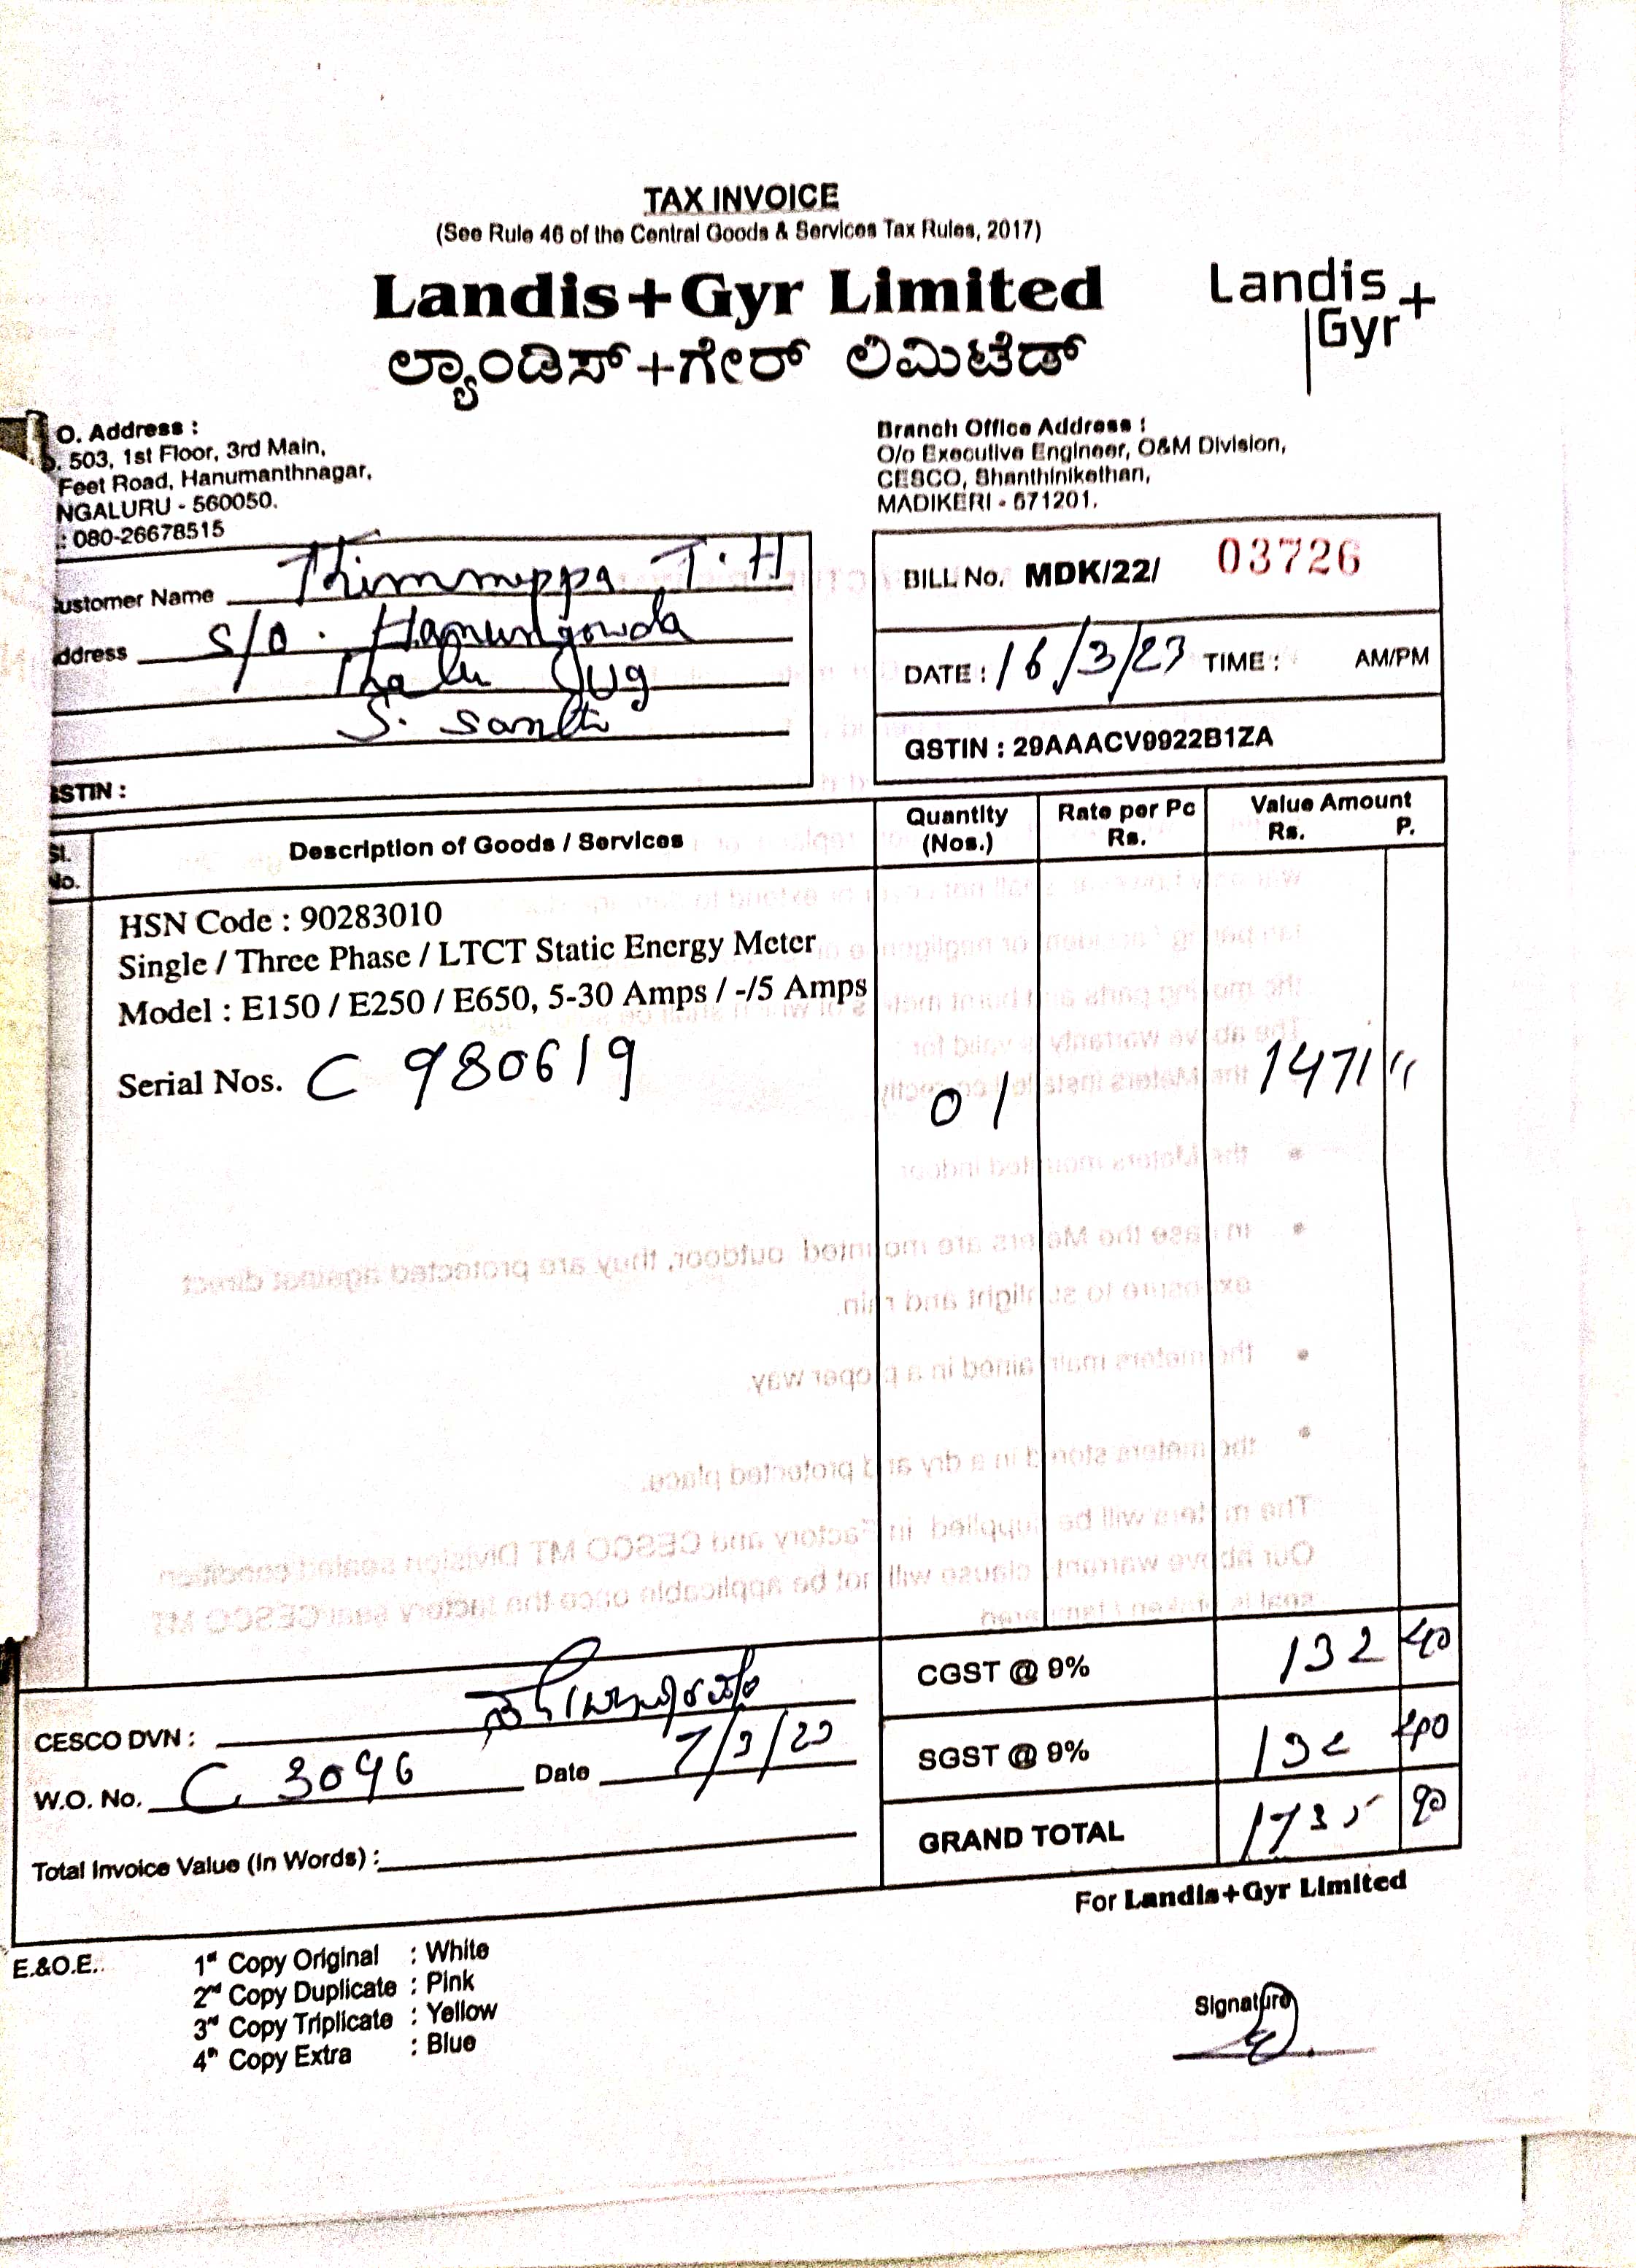 TAX INVOICE
(See Rule 46 of the Central Goods & Services Tax Rules, 2017)
Landis+Gyr Limited
ಲ್ಯಾಂಡಿಸ್+ಗೇರ್ ಲಿಮಿಟೆಡ್
Landis+
Gyr
O. Address :
503, 1st Floor, 3rd Main,
Feet Road, Hanumanthnagar,
NGALURU - 560050.
: 080-26678515
Branch Office Address :
O/o Executive Engineer, O&M Division,
CESCO, Shanthinikethan,
MADIKERI - 571201.
ustomer Name Thimmappa T.H
ddress S/o.
S.
STIN :
BILL No. MDK/22/ 03726
DATE : 16/3/23 TIME : AM/PM
GSTIN : 29AAACV9922B1ZA
Sl. No. Description of Goods / Services Quantity (Nos.) Rate per Pc Rs. Value Amount Rs. P.
HSN Code : 90283010
Single / Three Phase / LTCT Static Energy Meter
Model : E150 / E250 / E650, 5-30 Amps / -/5 Amps
Serial Nos. C 980619 01 1471
CGST @ 9% 132 40
SGST @ 9% 132 40
GRAND TOTAL 1735 90
CESCO DVN :
W.O. No. C 3096 Date 7/3/23
Total Invoice Value (In Words) :
For Landis+Gyr Limited
E.&O.E..
1st Copy Original : White
2nd Copy Duplicate : Pink
3rd Copy Triplicate : Yellow
4th Copy Extra : Blue
Signature